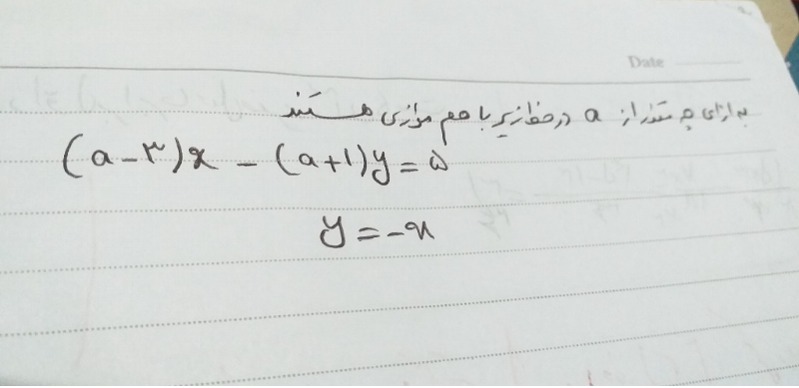 Date
به ازای چه مقدار از a دو خط زیر با هم موازی هستند
(a-۳)x - (a+1)y = ۵
y = -x